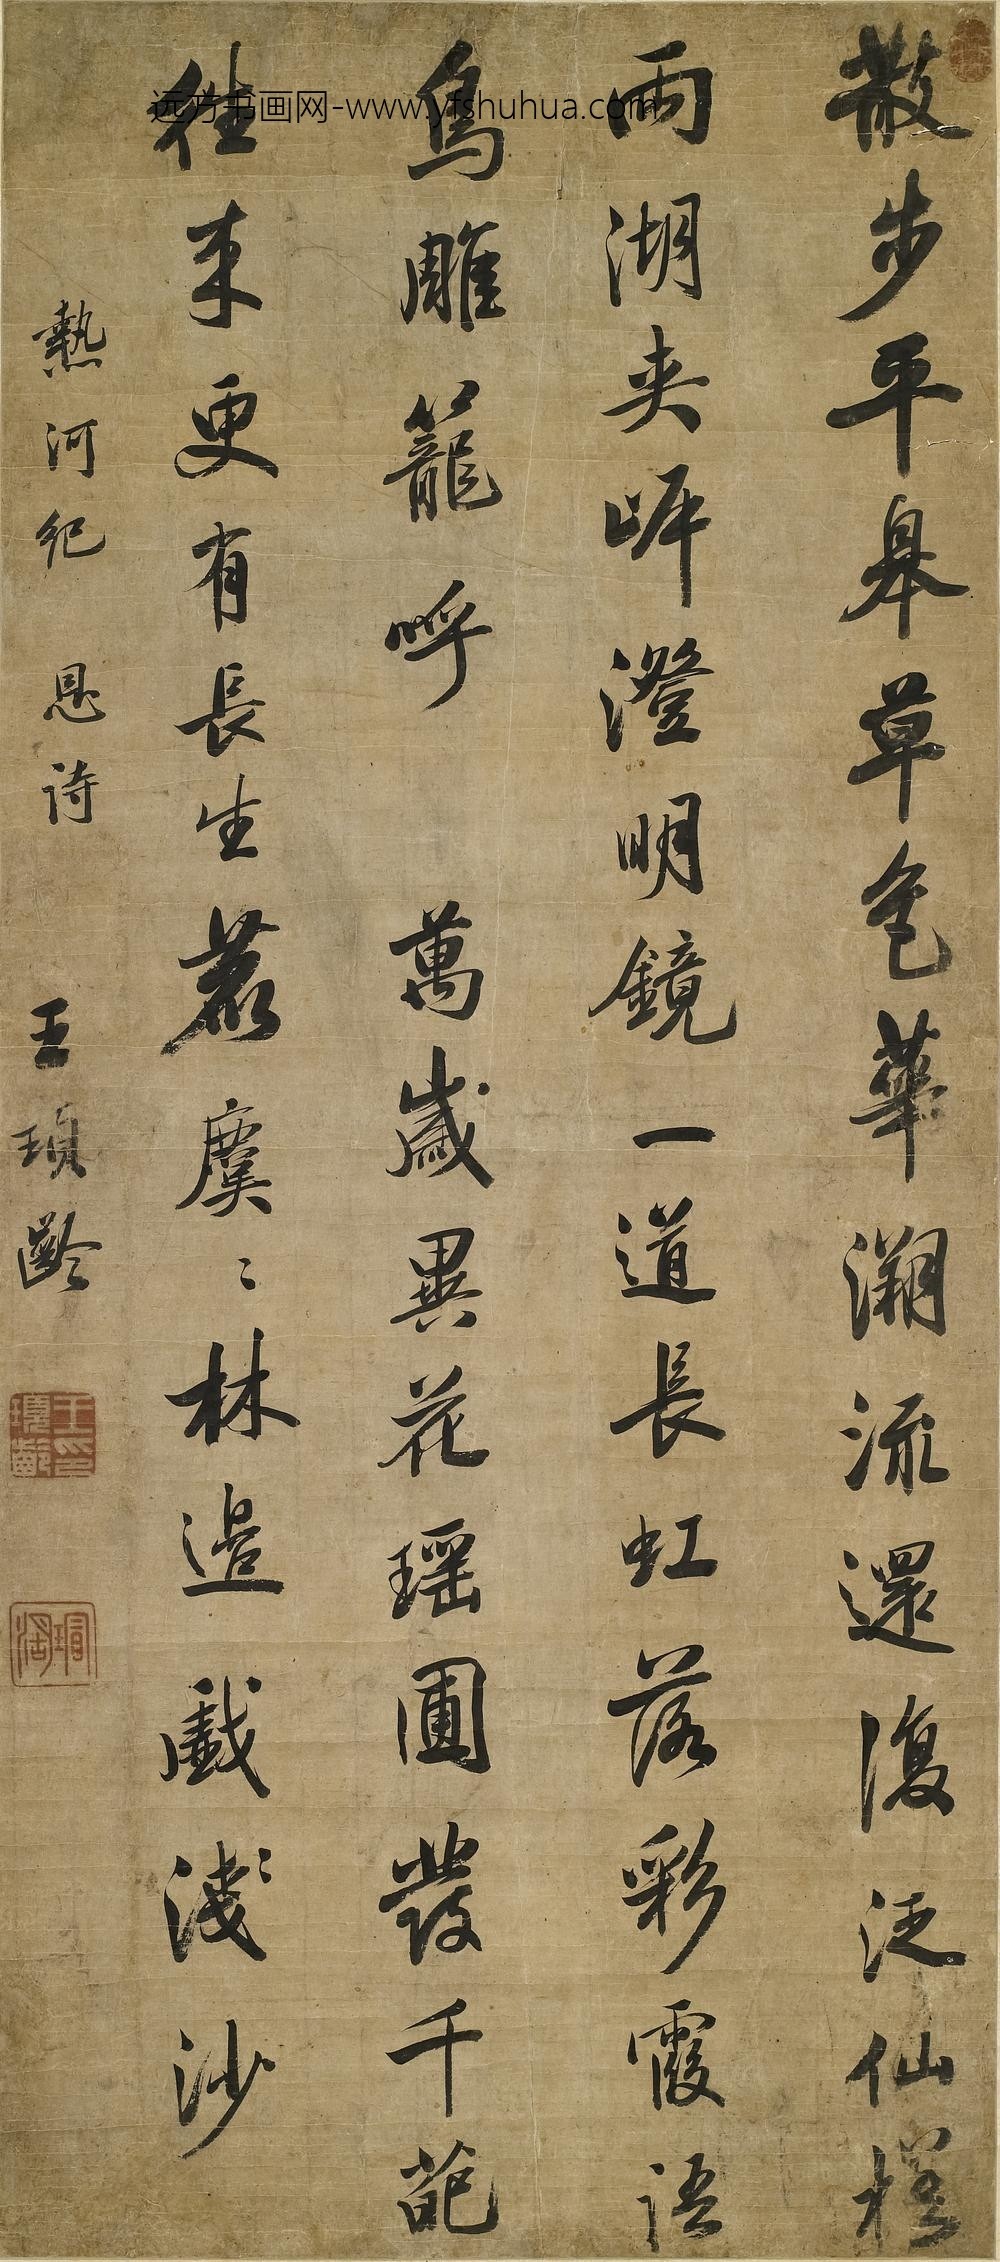 散步平皋草色華溯流還復泛仙槎
兩湖夾岸澄明鏡一道長虹落彩霞語
鳥雕籠呼萬歲異花瑶圃發千葩
往來更有長生麃麌麌林邊戲淺沙
熱河紀恩詩
王頊齡
王頊齡印
瑁湖
远方书画网-www.yfshuhua.com